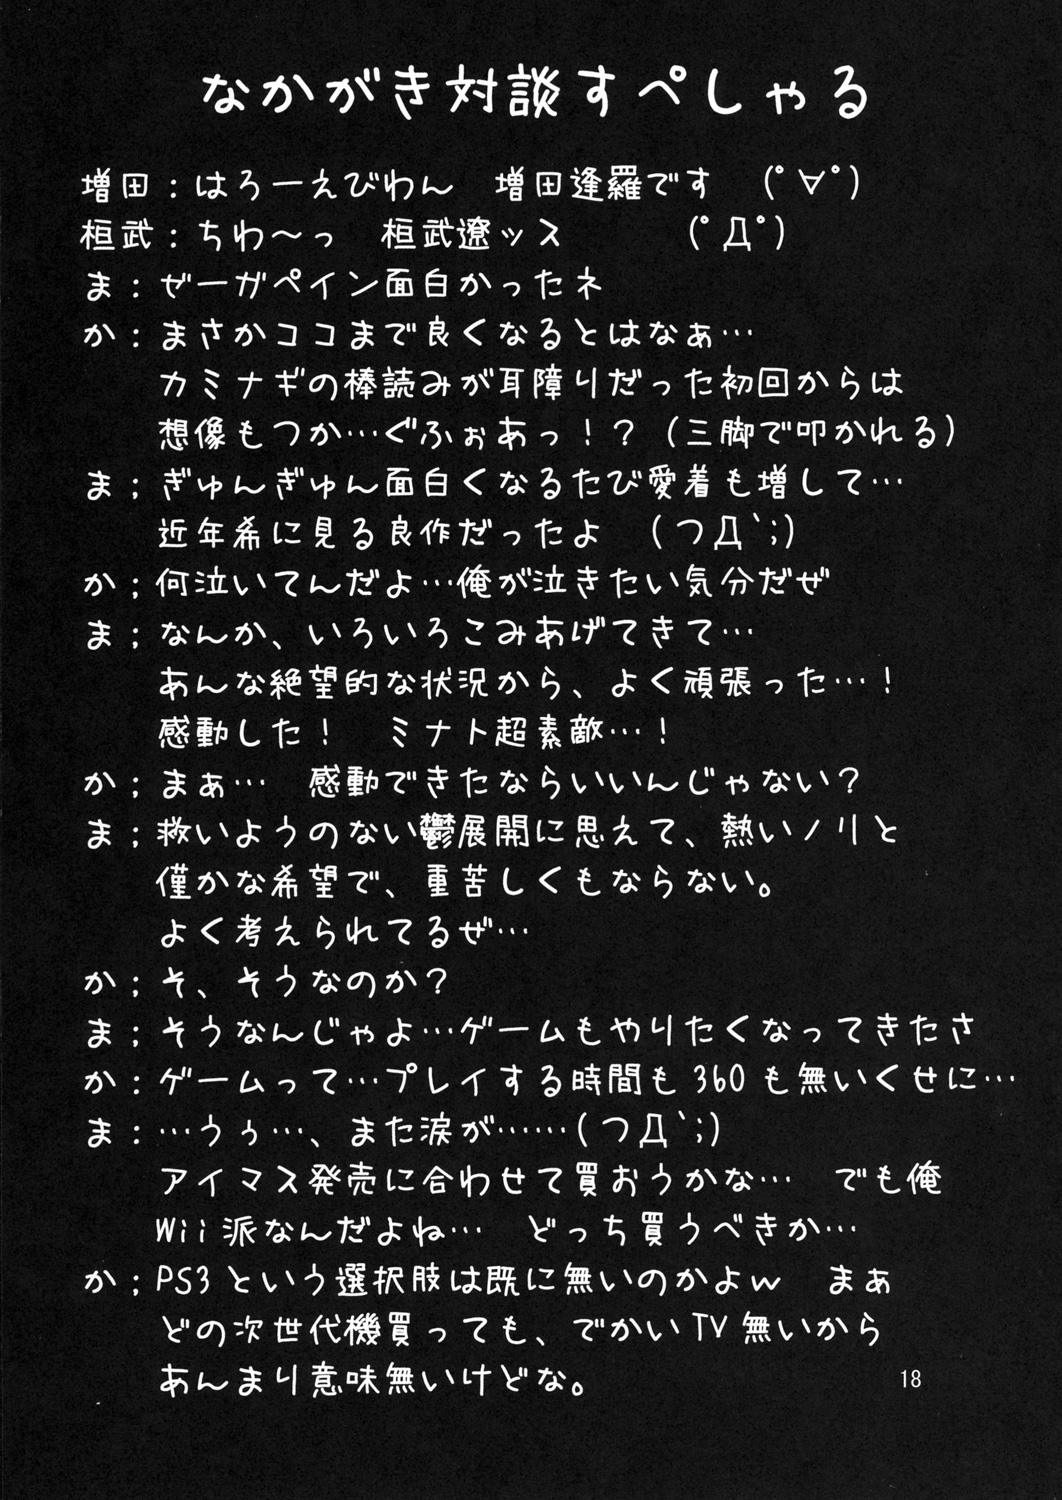 なかがき対談すぺしゃる
増田：はろーえびわん　増田逢羅です　（ﾟ∀ﾟ）
桓武：ちわ～っ　桓武遼ッス　　　（ﾟДﾟ）
ま：ゼーガペイン面白かったネ
か：まさかココまで良くなるとはなぁ…
カミナギの棒読みが耳障りだった初回からは
想像もつか…ぐふぉあっ！？（三脚で叩かれる）
ま；ぎゅんぎゅん面白くなるたび愛着も増して…
近年希に見る良作だったよ　（つД`;）
か；何泣いてんだよ…俺が泣きたい気分だぜ
ま；なんか、いろいろこみあげてきて…
あんな絶望的な状況から、よく頑張った…！
感動した！　ミナト超素敵…！
か；まぁ…　感動できたならいいんじゃない？
ま；救いようのない鬱展開に思えて、熱いノリと
僅かな希望で、重苦しくもならない。
よく考えられてるぜ…
か；そ、そうなのか？
ま；そうなんじゃよ…ゲームもやりたくなってきたさ
か：ゲームって…プレイする時間も360も無いくせに…
ま：…うぅ…、また涙が……（つД`;）
アイマス発売に合わせて買おうかな…　でも俺
Wii派なんだよね…　どっち買うべきか…
か；PS3という選択肢は既に無いのかよw　まぁ
どの次世代機買っても、でかいTV無いから
あんまり意味無いけどな。
18